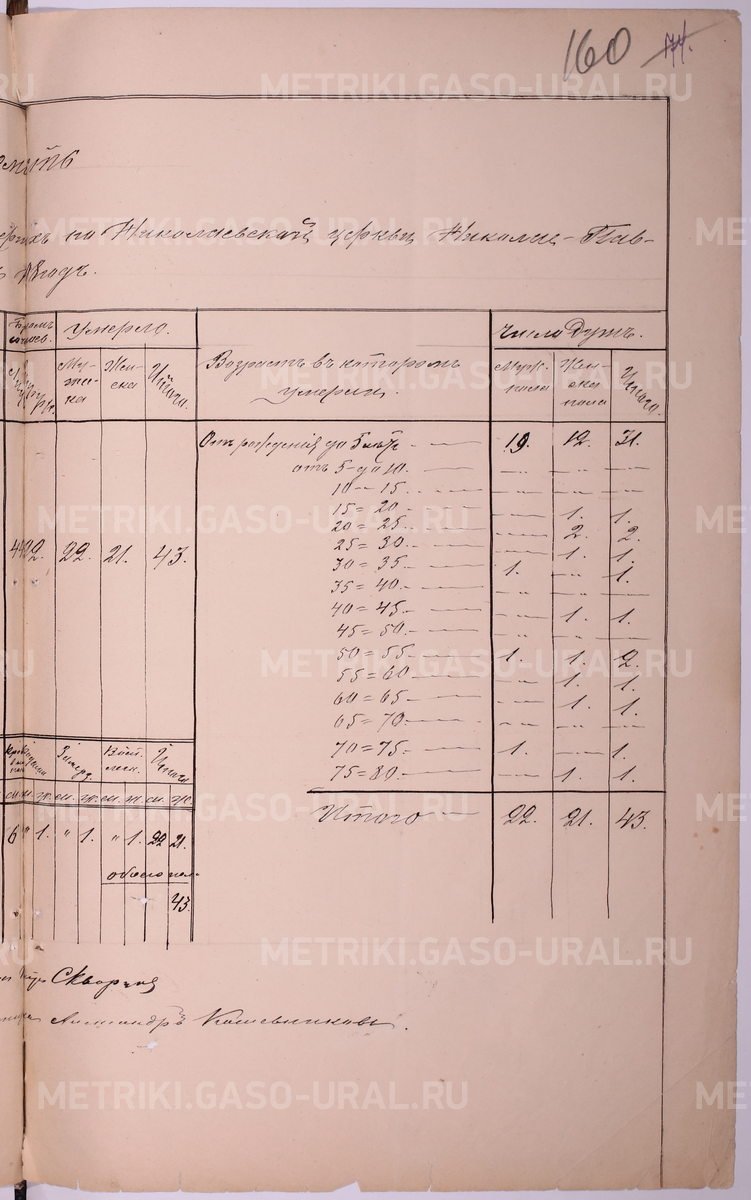 160 74.
по Николаевской церкви Николае-Пав-
годъ.
Умерло. Число Душъ.
Муж- Жен- Итого. Возрастъ въ которомъ Муж. Жен- Итого.
ска ска умерли. пола ска
пола
Отъ рожденія до 5 лѣтъ — 19. 12. 31.
отъ 5 до 10. — — — —
10 — 15 — — — —
15 = 20 — — 1. 1.
20 = 25 — — 2. 2.
25 = 30 — — 1. 1.
30 = 35 — 1. — 1.
35 = 40 — — — —
40 = 45 — — 1. 1.
45 = 50 — — — —
50 = 55 — 1. 1. 2.
55 = 60 — — 1. 1.
60 = 65 — — 1. 1.
65 = 70 — — — —
70 = 75 — 1. — 1.
75 = 80 — — 1. 1.
Итого — 22. 21. 43.
22. 21. 43.
Итого
м. ж. м. ж. м. ж. м. ж.
6 " 1. " 1. " 1. 22 21.
обоего пола
43.
Скворцов
Александръ Кошевниковъ.
METRIKI.GASO-URAL.RU